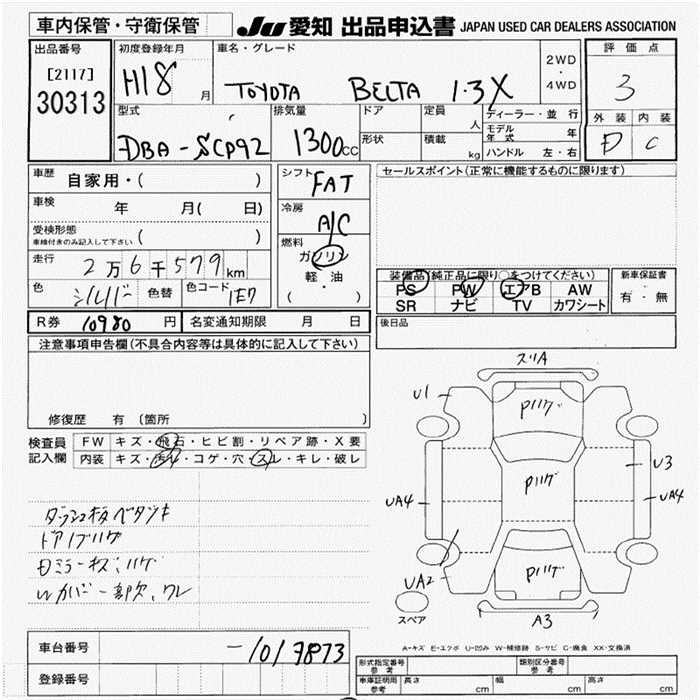 車内保管・守衛保管 JU 愛知 出品申込書 JAPAN USED CAR DEALERS ASSOCIATION
出品番号 [2117] 30313
初度登録年月 H18 月
車名・グレード TOYOTA BELTA 1.3X
2WD・4WD
評価点 3
外装 D 内装 C
型式 DBA-SCP92
排気量 1300cc
ドア 形状
定員 人
積載 kg
ディーラー・並行
モデル年式 年
ハンドル 左・右
車歴 自家用・( )
車検 年 月( 日)
受検形態 車検付きのみ記入して下さい ( )
走行 2万6千579km
色 シルバー 色替 色コード 1E7
シフト FAT
冷房 A/C
燃料 ガソリン 軽・油 ( ・ )
セールスポイント(正常に機能するものに限ります)
装備品(純正品に限り○をつけてください)
PS PW エアB AW
SR ナビ TV カワシート
新車保証書 有・無
R券 10980円 名変通知期限 月 日
後日品
注意事項申告欄(不具合内容等は具体的に記入して下さい)
修復歴 有 〔箇所 〕
検査員記入欄
FW キズ・飛石・ヒビ割・リペア跡・X要
内装 キズ・汚れ・コゲ・穴・スレ・キレ・破レ
ダッシュ板ベタツキ
ドアノブハゲ
Dミラーキズ、ハゲ
Wカバー一部欠、ワレ
スリA
U1
Pハゲ
U3
Pハゲ
UA4
UA4
Pハゲ
UA2
A3
スペア
A-キズ E-エクボ U-凹み W-補修跡 S-サビ C-腐食 XX-交換済
車台番号 -1017873
登録番号
形式指定番号 参考 類別区分番号 参考
車庫証明用 参考 長さ cm 幅 cm 高さ cm